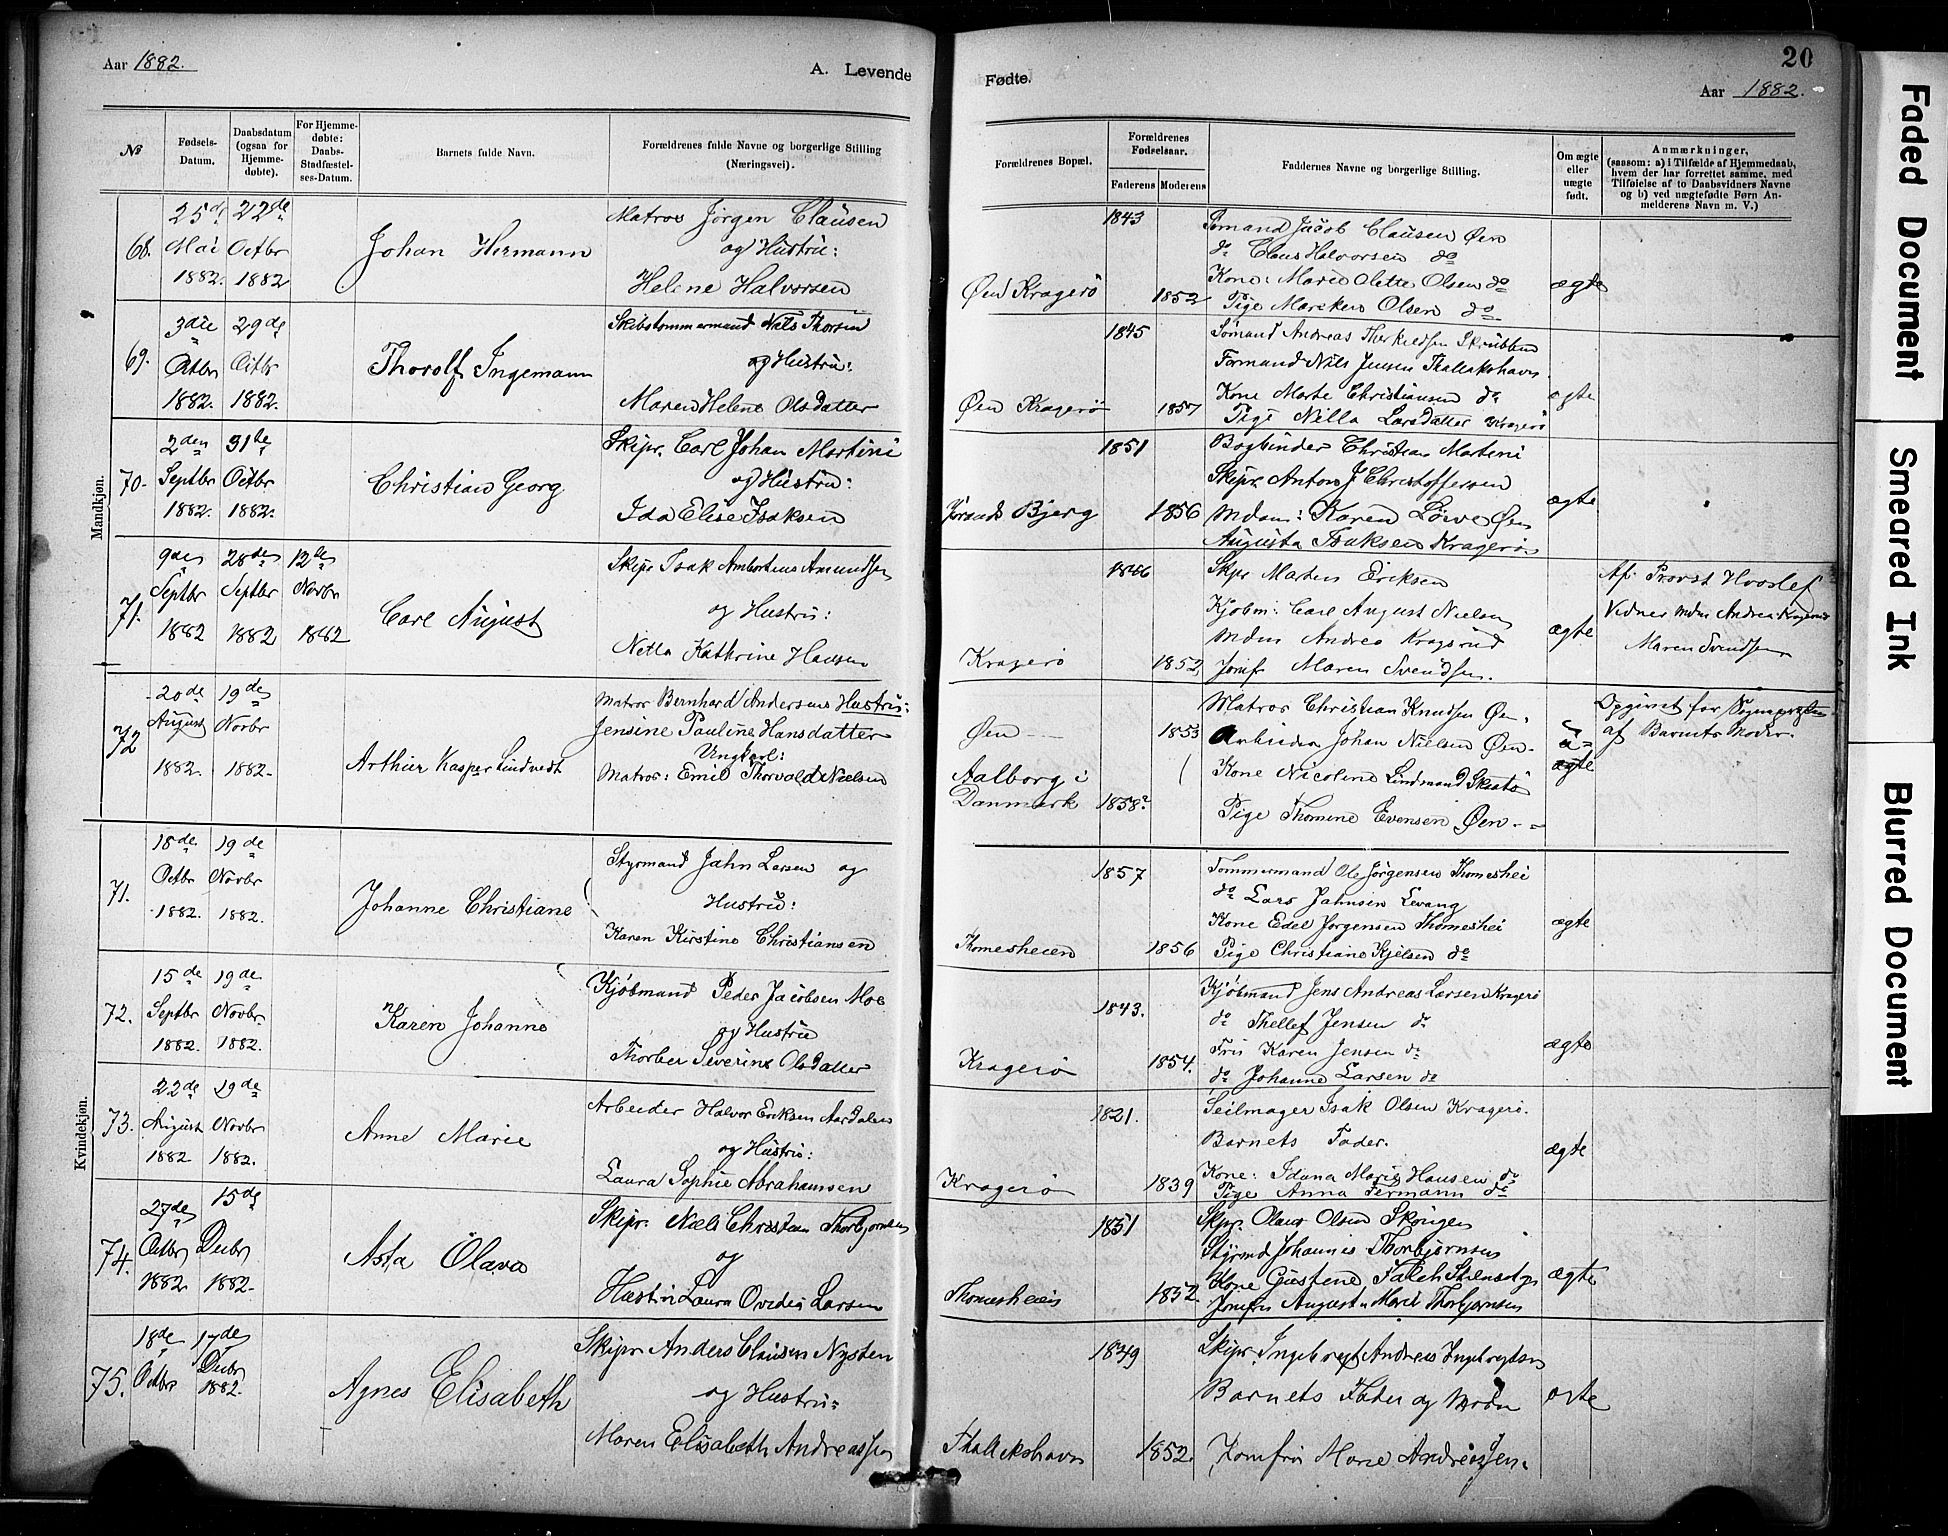 Aar 1882.
A. Levende
Fødte.
20
Aar 1882.
№
Fødsels-Datum.
Daabsdatum (ogsaa for Hjemme-døbte).
For Hjemme-døbte: Daabs-Stadfæstel-ses-Datum.
Barnets fulde Navn.
Forældrenes fulde Navne og borgerlige Stilling (Næringsvei).
Forældrenes Bopæl.
Forældrenes Fødselsaar.
Faderens
Moderens
Faddernes Navne og borgerlige Stilling.
Om ægte eller uægte født.
Anmærkninger, (saasom: a) i Tilfælde af Hjemmedaab, hvem der har forrettet samme, med Tilføielse af to Daabsvidners Navne og b) ved uægtefødte Børn An-melderens Navn m. V.)
Mandkjøn.
68.
25de Mai 1882.
22de Octbr 1882
Johan Hermann
Matros Jørgen Clausen
og Hustru:
Helene Halvorsen
Øen Kragerø
1843
1852
Sømand Jacob Clausen Øen
do Claus Halvorsen do
Kone: Marie Olette Olsen do
Pige Mareken Olsen do
ægte
69.
3die Octbr 1882.
29de Octbr 1882.
Thorolf Ingemann
Skibstømmermand Nils Thorsen
og Hustru:
Maren Helene Olsdatter
Øen Kragerø
1845
1857
Sømand Andreas Therkeldsen Skrubben
Formand Nils Jensen Thallakshavn.
Kone Marte Christiansen do
Pige Nilla Larsdatter Kragerø
ægte
70.
2den Septbr 1882.
31te Octbr 1882.
Christian Georg
Skipr. Carl Johan Martini
og Hustru:
Ida Elise Isaksen
Bjerg
1851
1856
Bogbinder Christian Martini
Skipr Anton J Christoffersen
Mdam: Karen Løwe Øen
Augusta Isaksen Kragerø
ægte
71.
9de Septbr 1882
28de Septbr 1882
12te Novbr 1882
Carl August
Skipr Isak Ambortius Amundsen
og Hustru:
Nella Kathrine Hansen
Kragerø
1846
1852
Skpr Marten Eriksen
Kjøbm: Carl August Nielsen
Mdm Andrea Kragsrud
Jomfr Maren Svendsen.
ægte
Af Provst Hvoslef
Vidner Mdm Andrea Kragsrud
Maren Svendsen
72
20de August 1882.
19de Novbr 1882.
Arthur Kasper Lindvedt
Matros Bernhard Andersens Hustru:
Jensine Pauline Hansdatter
Ungkarl:
Matros: Emil Thorvald Nielsen
Øen
Aalborg i Danmark
1853
1858?
Matros Christian Knudsen Øen.
Arbeider Johan Nielsen Øen.
Kone Nicoline Lindmand Skaatø
Pige Thomine Evensen Øen
u=
ægte
Opgivet for Sognepresten
af Barnets Moder.
Kvindekjøn.
71.
18de Octbr 1882.
19de Novbr 1882.
Johanne Christiane
Styrmand Jahn Larsen og
Hustru:
Karen Kirstine Christiansen
Thomesheien
1857
1856
Tømmermand Ole Jørgensen Thomeshei
do Lars Jahnsen Levang
Kone Edel Jørgensen Thomeshei
Pige Christiane Kjelsen do
ægte
72.
15de Septbr 1882.
19de Novbr. 1882.
Karen Johanne
Kjøbmand Peder Jacobsen Moe
og Hustru
Thorber Severine Olsdatter
Kragerø
1843.
1854.
Kjøbmand Jens Andreas Larsen Kragerø
do Thellef Jensen do
Frk Karen Jensen do
do Johanne Larsen do
ægte
73.
22de August 1882
19de Novbr 1882.
Anne Marie
Arbeider Halvor Eriksen Aardalen
og Hustru:
Laura Sophie Abrahamsen
Kragerø
1821.
1839
Seilmager Isak Olsen Kragerø.
Barnets Fader.
Kone: Idana Marie Hansen do
Pige Anna Fermann do
ægte
74.
27de Octbr 1882
15de Decbr 1882.
Asta Olava
Skipr. Niels Christian Thorbjørnsen
og
Hustru Laura Ovedia Larsen
Thomesheien
1851
1852.
Skpr. Olaus Olsen Skougen
Styrmd Johannes Thorbjørnsen
Kone Gustene Falch
Jomfru August Marie Thorbjørnsen
ægte
75.
18de Octbr
17de Decbr 1882.
Agnes Elisabeth
Skipr Anders Clausen Nysten
og Hustru:
Maren Elisabeth Andreassen
Thallekshavn
1849
1852.
Skipr. Ingebregt Andreas Ingebregtsen
Barnets Fader og Moder
Jomfru Marie Andreassen.
ægte
Faded Document
Smeared Ink
Blurred Document